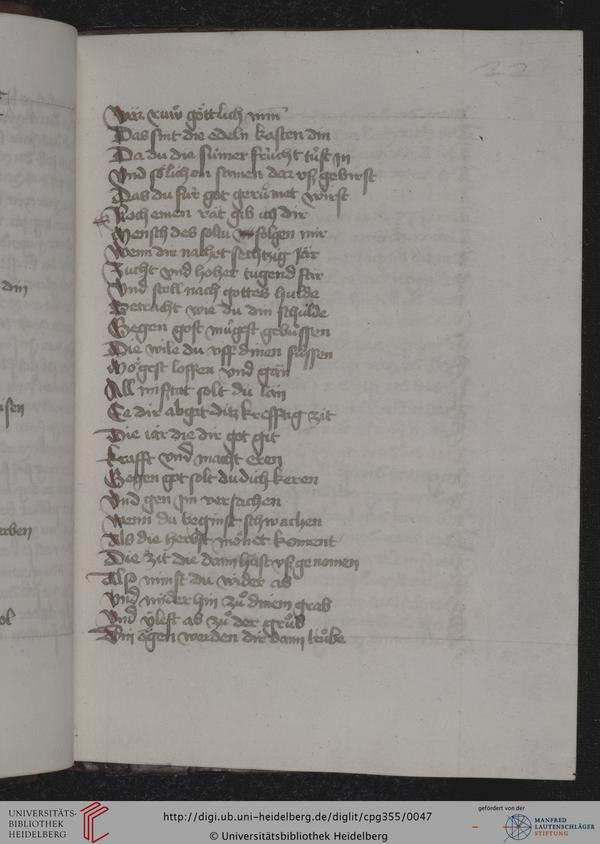 22
Wär ruw göttlich min
Das sint die edeln kasten din
Da du die sumer frücht tůst Jn
Vnd sölichen somen dar vß gebirst
Das du für got gerůmet wirst
Noch einen rät gib ich dir
Mensch des soltu folgen mir
Wenn dir nachet sechtzig Jär
Zucht vnd hoher tugend
Vnd stell nach gottes hulde
Betracht wie du din schulde
Gegen gott mügest gebüssen
Die wile du vff dinen füssen
Mögest loffen vnd gän
All missetat solt du län
Ee dir abgät ditz krefftig zit
Die iär die dir got git
krafft vnd macht eren
Gegen got solt du dich keren
Vnd gen Jm versachen
Wenn du beginst schwachen
Als die herbst mönet koment
Die zit die dann häst vß genomen
Also nimst du wider ab
Vnd wider hin zů dinem grab
Vnd ylest ab zů der grůb
Din ögen werden dir dann trůbe
din
rben
ol
UNIVERSITÄTS-
BIBLIOTHEK
HEIDELBERG
http://digi.ub.uni-heidelberg.de/diglit/cpg355/0047
© Universitätsbibliothek Heidelberg
gefördert von der
MANFRED
LAUTENSCHLÄGER
STIFTUNG